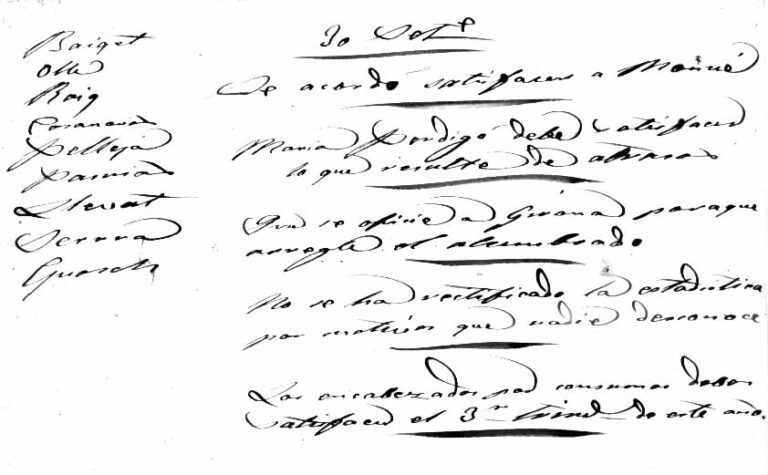 Baiget
Ollé
Roig
Casanovas
Pellejá
Pamias
Llevat
Serra
Guasch
30 Set.e
Se acordó satisfacer a Mañné
Maria Perdigó debe satisfacer
lo que resulte de atrasos
Que se oficie a Girona para que
arregle el alumbrado
No se ha rectificado la estadistica
por motivos que nadie desconoce
Los encabezados por consumos deben
satisfacer el 3er trime de este año.